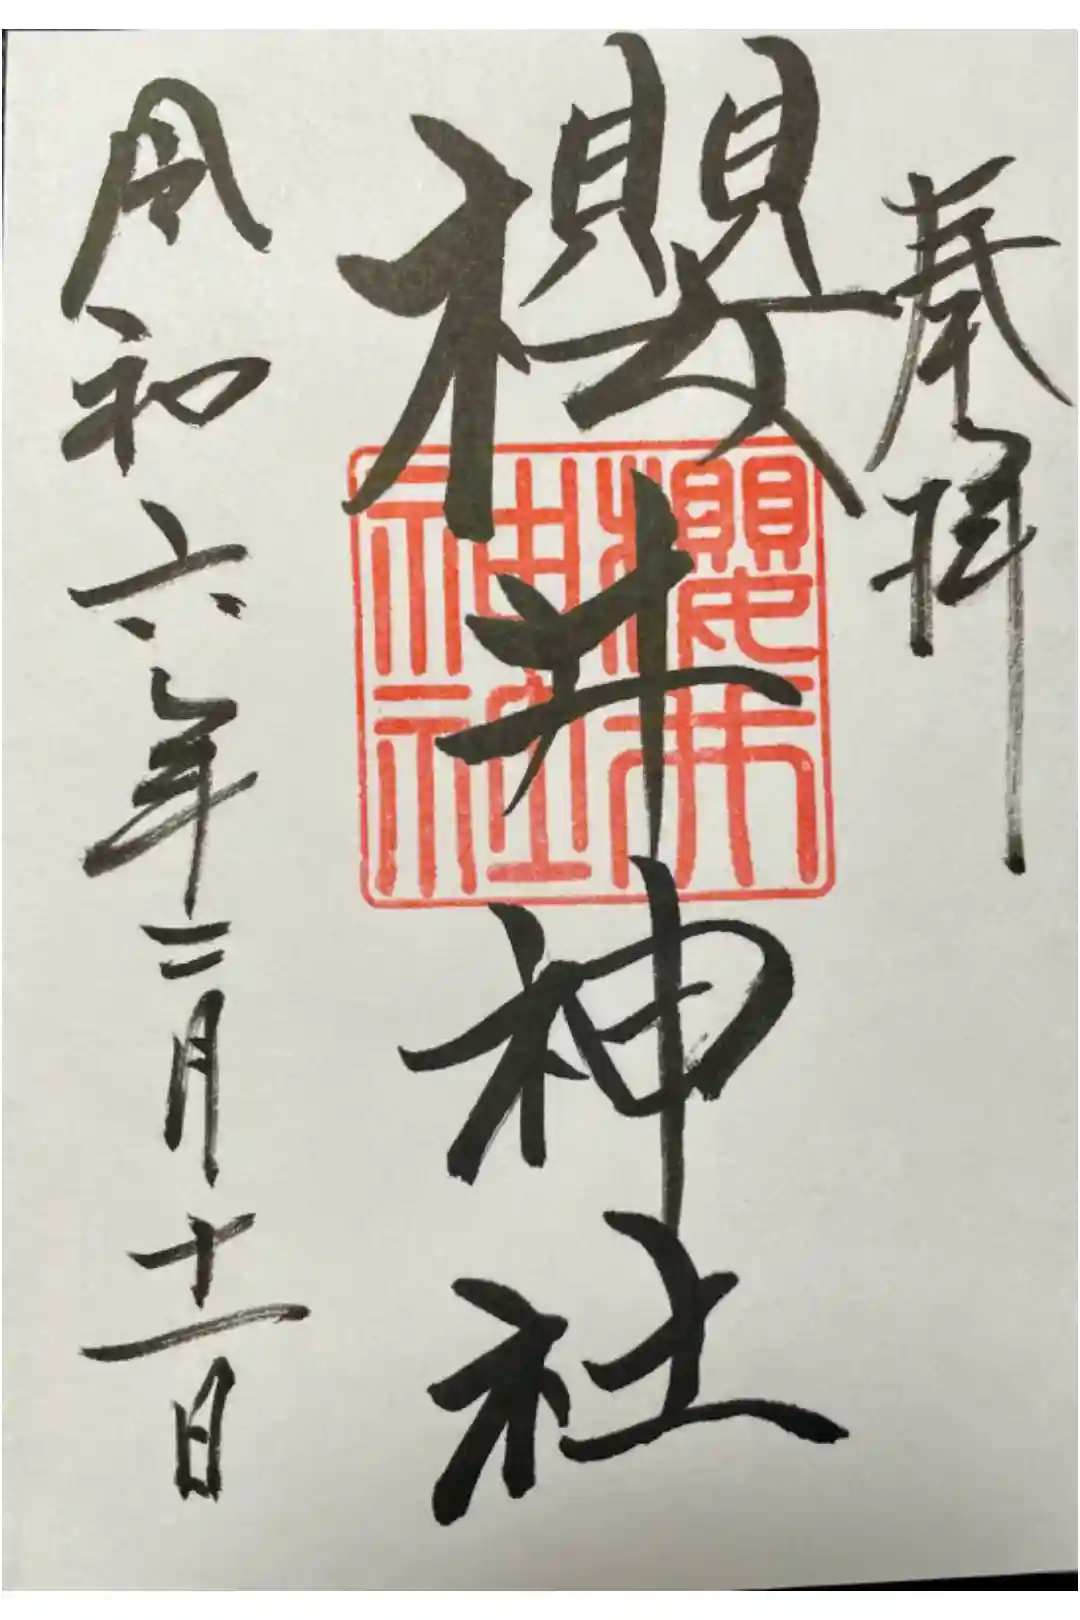 奉拝
櫻井神社
櫻井
神社
令和六年二月十一日